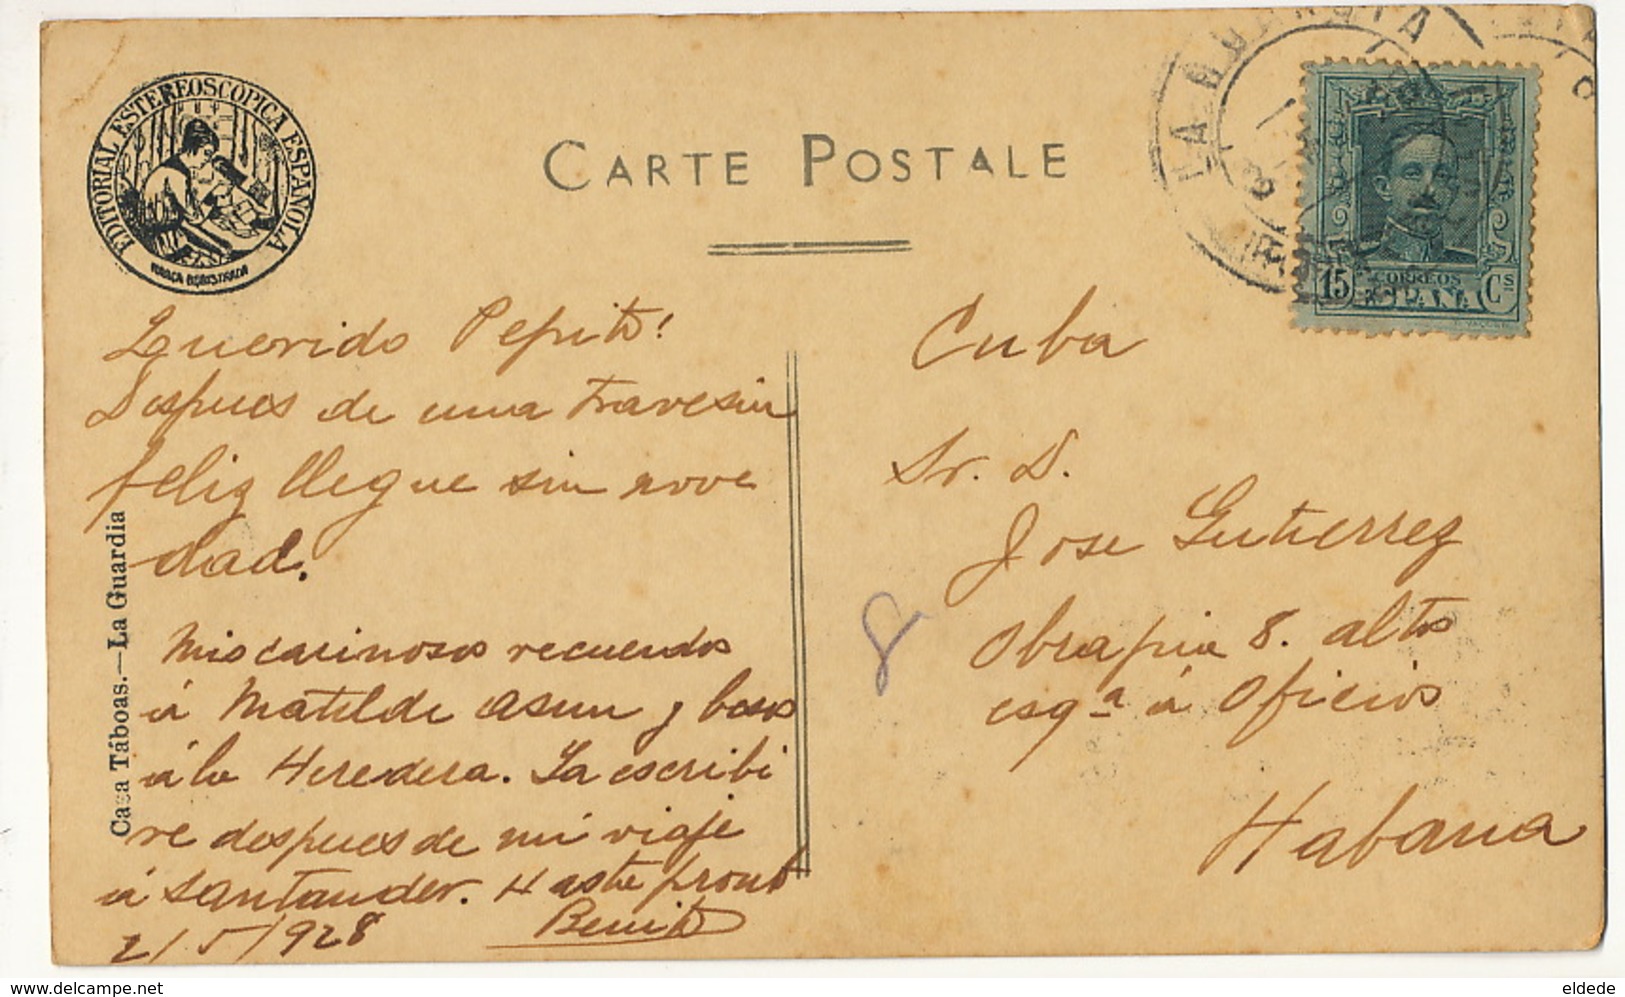 EDITORIAL ESTEREOSCOPICA ESPAÑOLA
MARCA REGISTRADA
CARTE POSTALE
LA GUARDIA
15 CORREOS Cts
ESPAÑA
Querido Pepito!
Despues de una travesia
feliz llegue sin nove
dad.
Mis carinosos recuerdos
á Matilde Asun y besos
á la Heredera. Ya escribi
re despues de mi viaje
á Santander. Hasta pronto
Benito
2/5/928
Casa Táboas.—La Guardia
Cuba
Sr. D.
Jose Gutierrez
Obrapia 8. altos
esqª á Oficios
Habana
delcampe.net
eldede